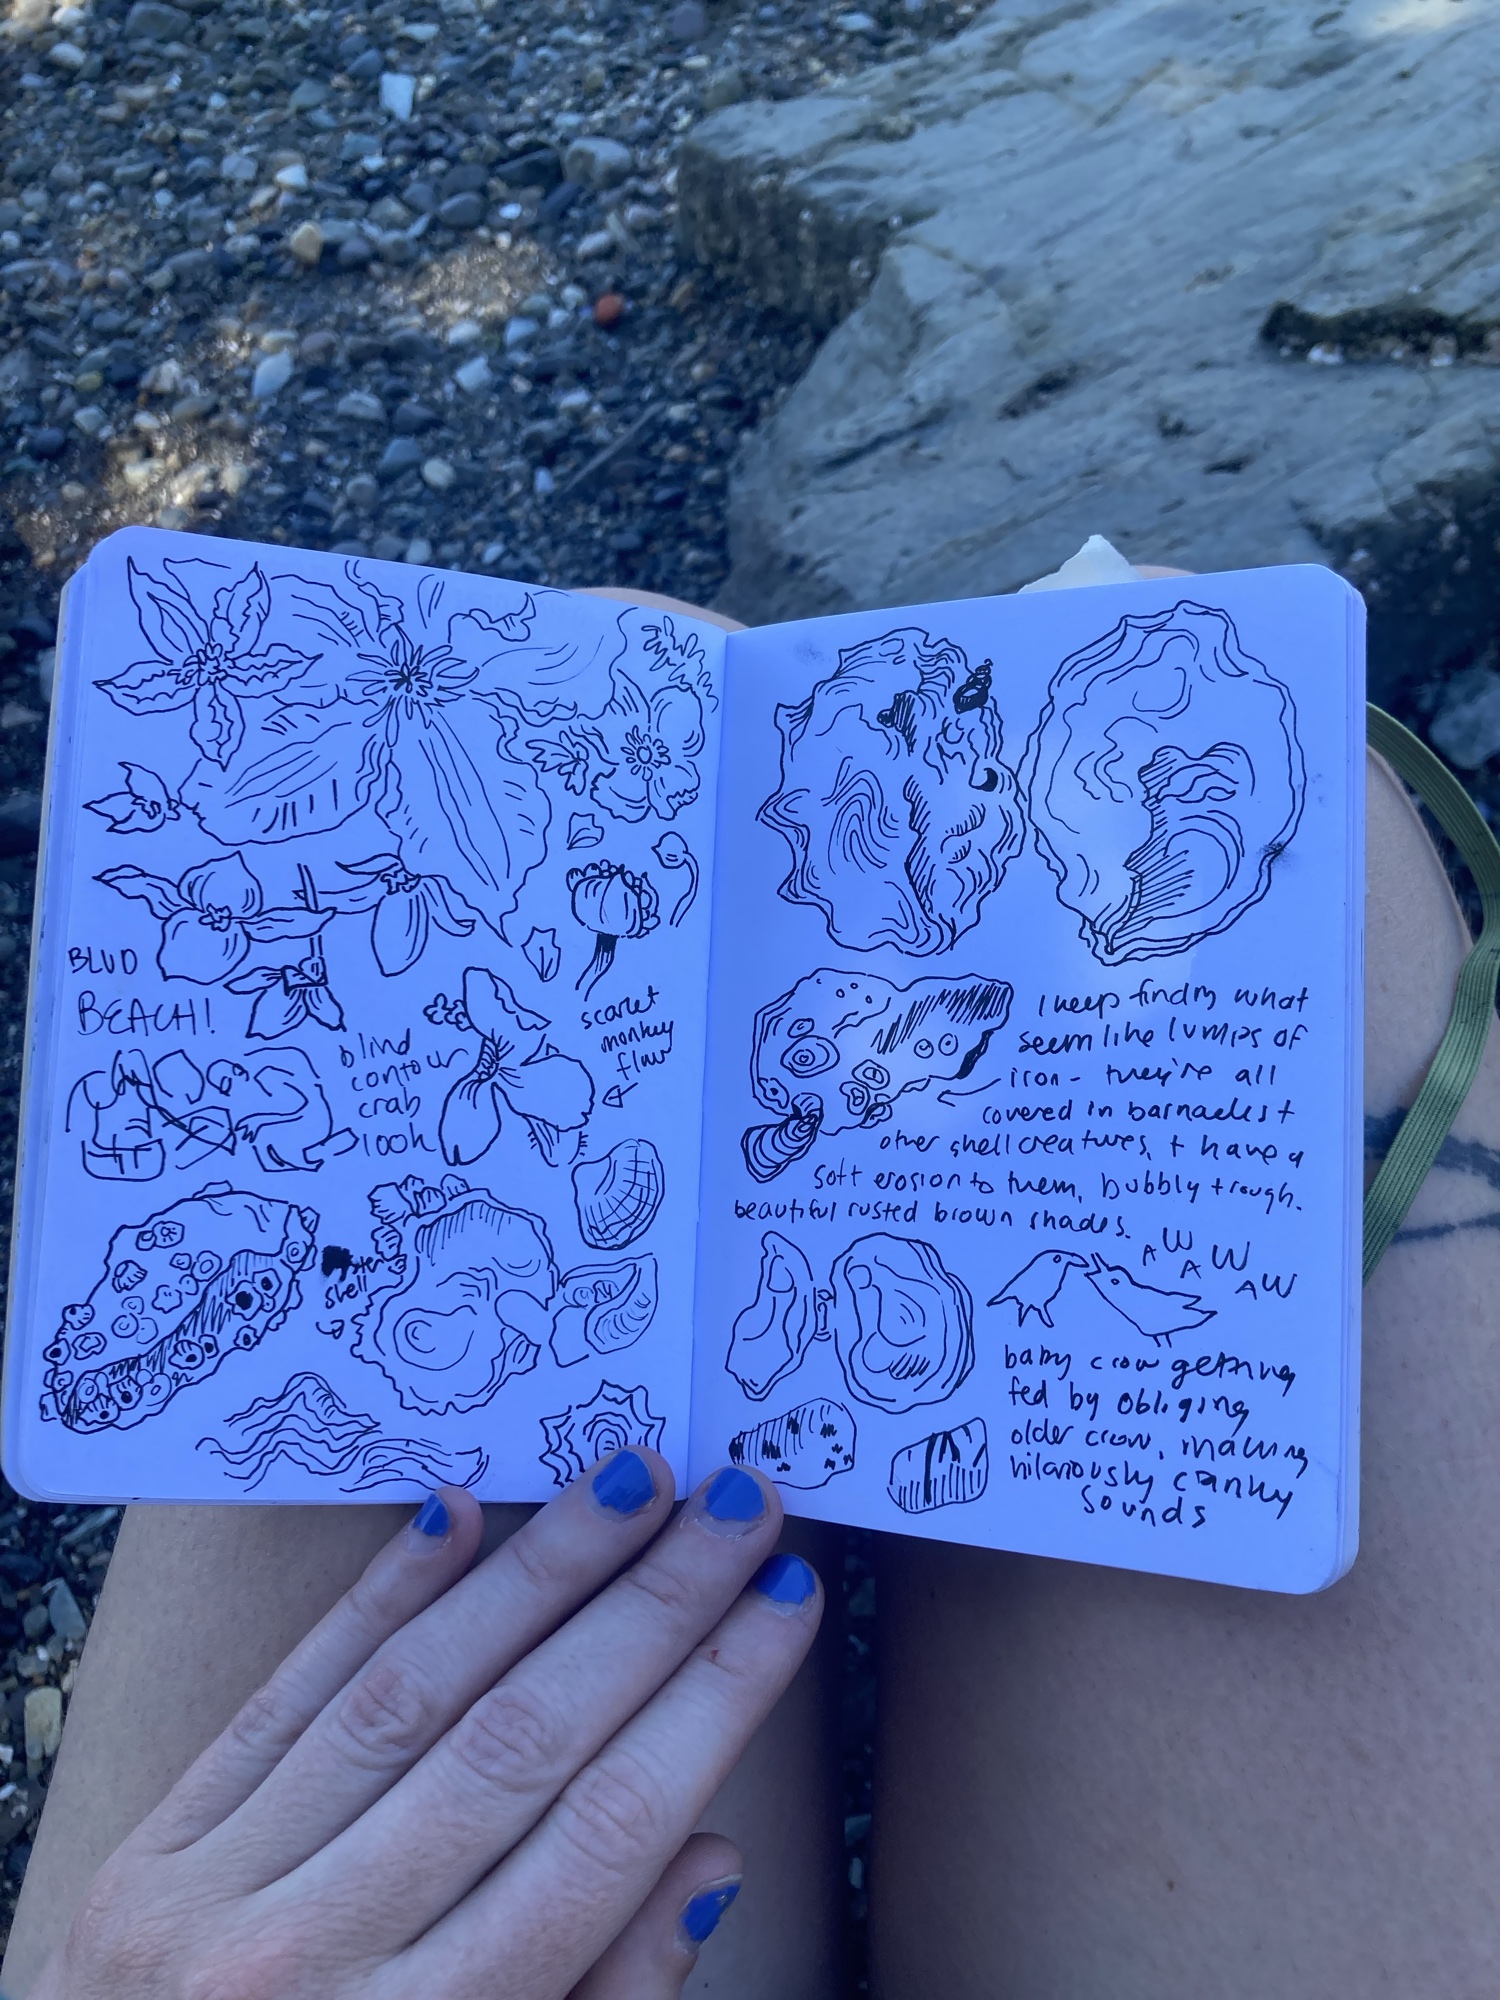 BLUD
BEACH!
blind
contour
crab
look
scarlet
monkey
flower
shell
I keep finding what
seem like lumps of
iron - they're all
covered in barnacles +
other shell creatures, + have a
soft erosion to them, bubbly + rough.
beautiful rusted brown shades.
AW AW AW
baby crow getting
fed by obliging
older crow, making
hilariously cranky
sounds